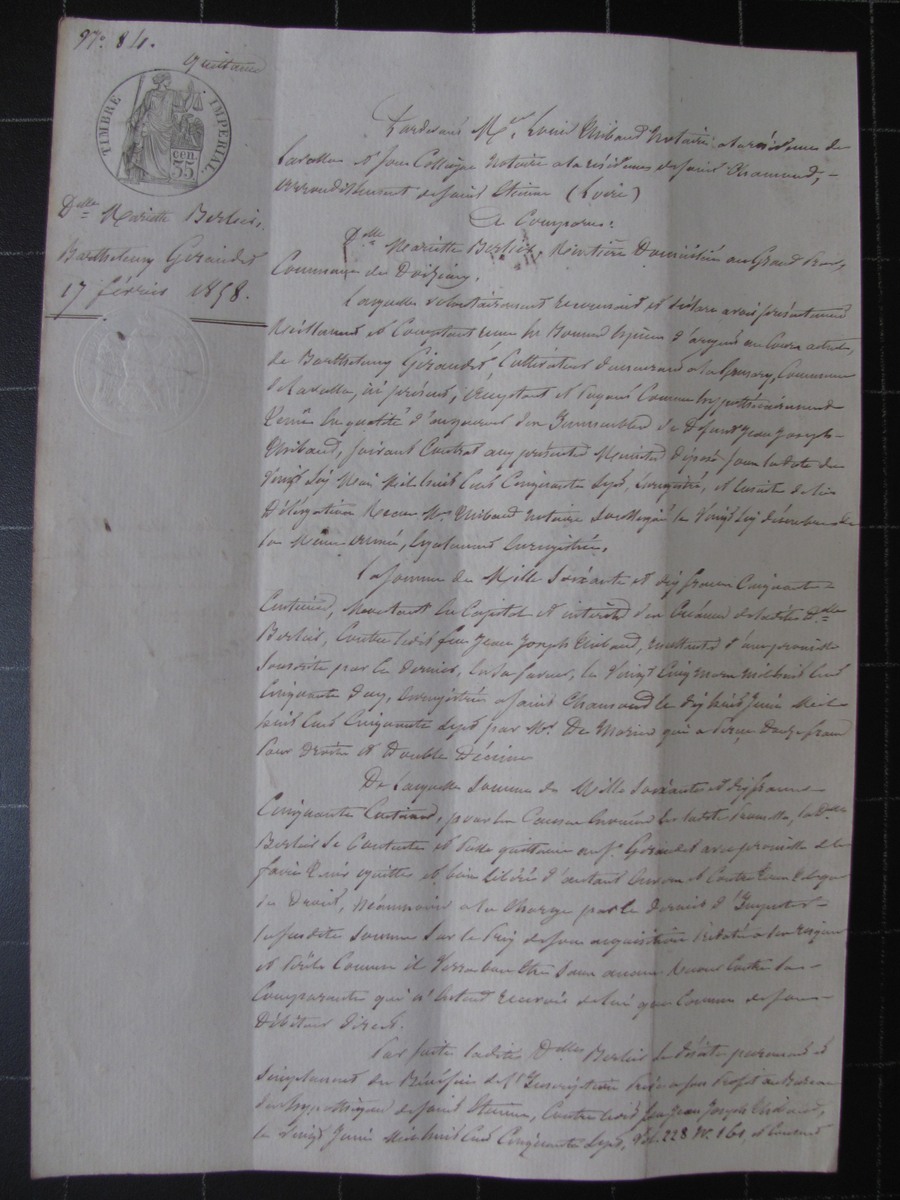 N° 84.
quittance
TIMBRE IMPERIAL
55 cen.
Delle Mariette Berlier,
Barthelemy Giraudet
17 février 1858.
Pardevant Me Louis Thibaud Notaire a la résidence de
Lavalla & son Collegue Notaire a la résidence de Saint Chamond,
arrondissement de Saint Etienne (Loire)
A Comparu:
Delle Mariette Berlier, Rentière Domiciliée au Grand
Commune de Doizieu,
Laquelle volontairement reconnait et déclare avoir présentement
Réellement et Comptant recu en Bonnes Espèces d'argent au Cours actuel,
de Barthelemy Giraudet Cultivateur demeurant a la Commune
de Lavalla, ici présent, acceptant et payant Comme hypothécairement
Tenu En qualité d'acquereur d'un Immeuble de Défunt Jean Joseph
Thibaud, suivant Contrat aux présentes Minutes déposé sous la date du
vingt Six Mai Mil huit Cent Cinquante Sept, Enregistré, et Ensuite de la
Délégation Recue Me Thibaud Notaire Soussigné le Vingt Six décembre de
la Meme année, Egalement Enregistrée,
La Somme de Mille Soixante et dix francs Cinquante
Centimes, Montant En Capital et intérêts d'une Créance de ladite Delle
Berlier, Contre ledit feu Jean Joseph Thibaud, resultante d'une promesse
Souscrite par Ce dernier, En Sa faveur, le Vingt Cinq mars mil huit Cent
Cinquante Deux, Enregistrée a Saint Chamond le dix huit Juin Mil
huit Cent Cinquante Sept par Mr. De qui a Percu Douze francs
Pour Droits et Double Décime
De Laquelle Somme de Mille Soixante et dix francs
Cinquante Centimes, pour les Causes Enoncées En ladite Promesse, la Delle
Berlier Se Contente et Passe quittance au Sr. Giraudet avec promesse de le
faire Tenir quitte et bien libéré d'autant Envers et Contre Tous
de Droit, Néanmoins a la Charge par Ce dernier d'Imputer
la Susdite Somme Sur le Prix de Son acquisition
et Comme il Verra bon Etre Sans aucun Recours Contre la
Comparante qui n'Entend recevoir de lui que Comme de Son
Débiteur Direct.
Par Suite ladite Delle Berlier Se désiste purement et
Simplement du Bénéfice de l'Inscription Prise a Son Profit au Bureau
des hypothèques de Saint Etienne, Contre ledit feu Jean Joseph Thibaud,
le Vingt Juin Mil huit Cent Cinquante Sept, Vol. 228 N. 161 et Consent